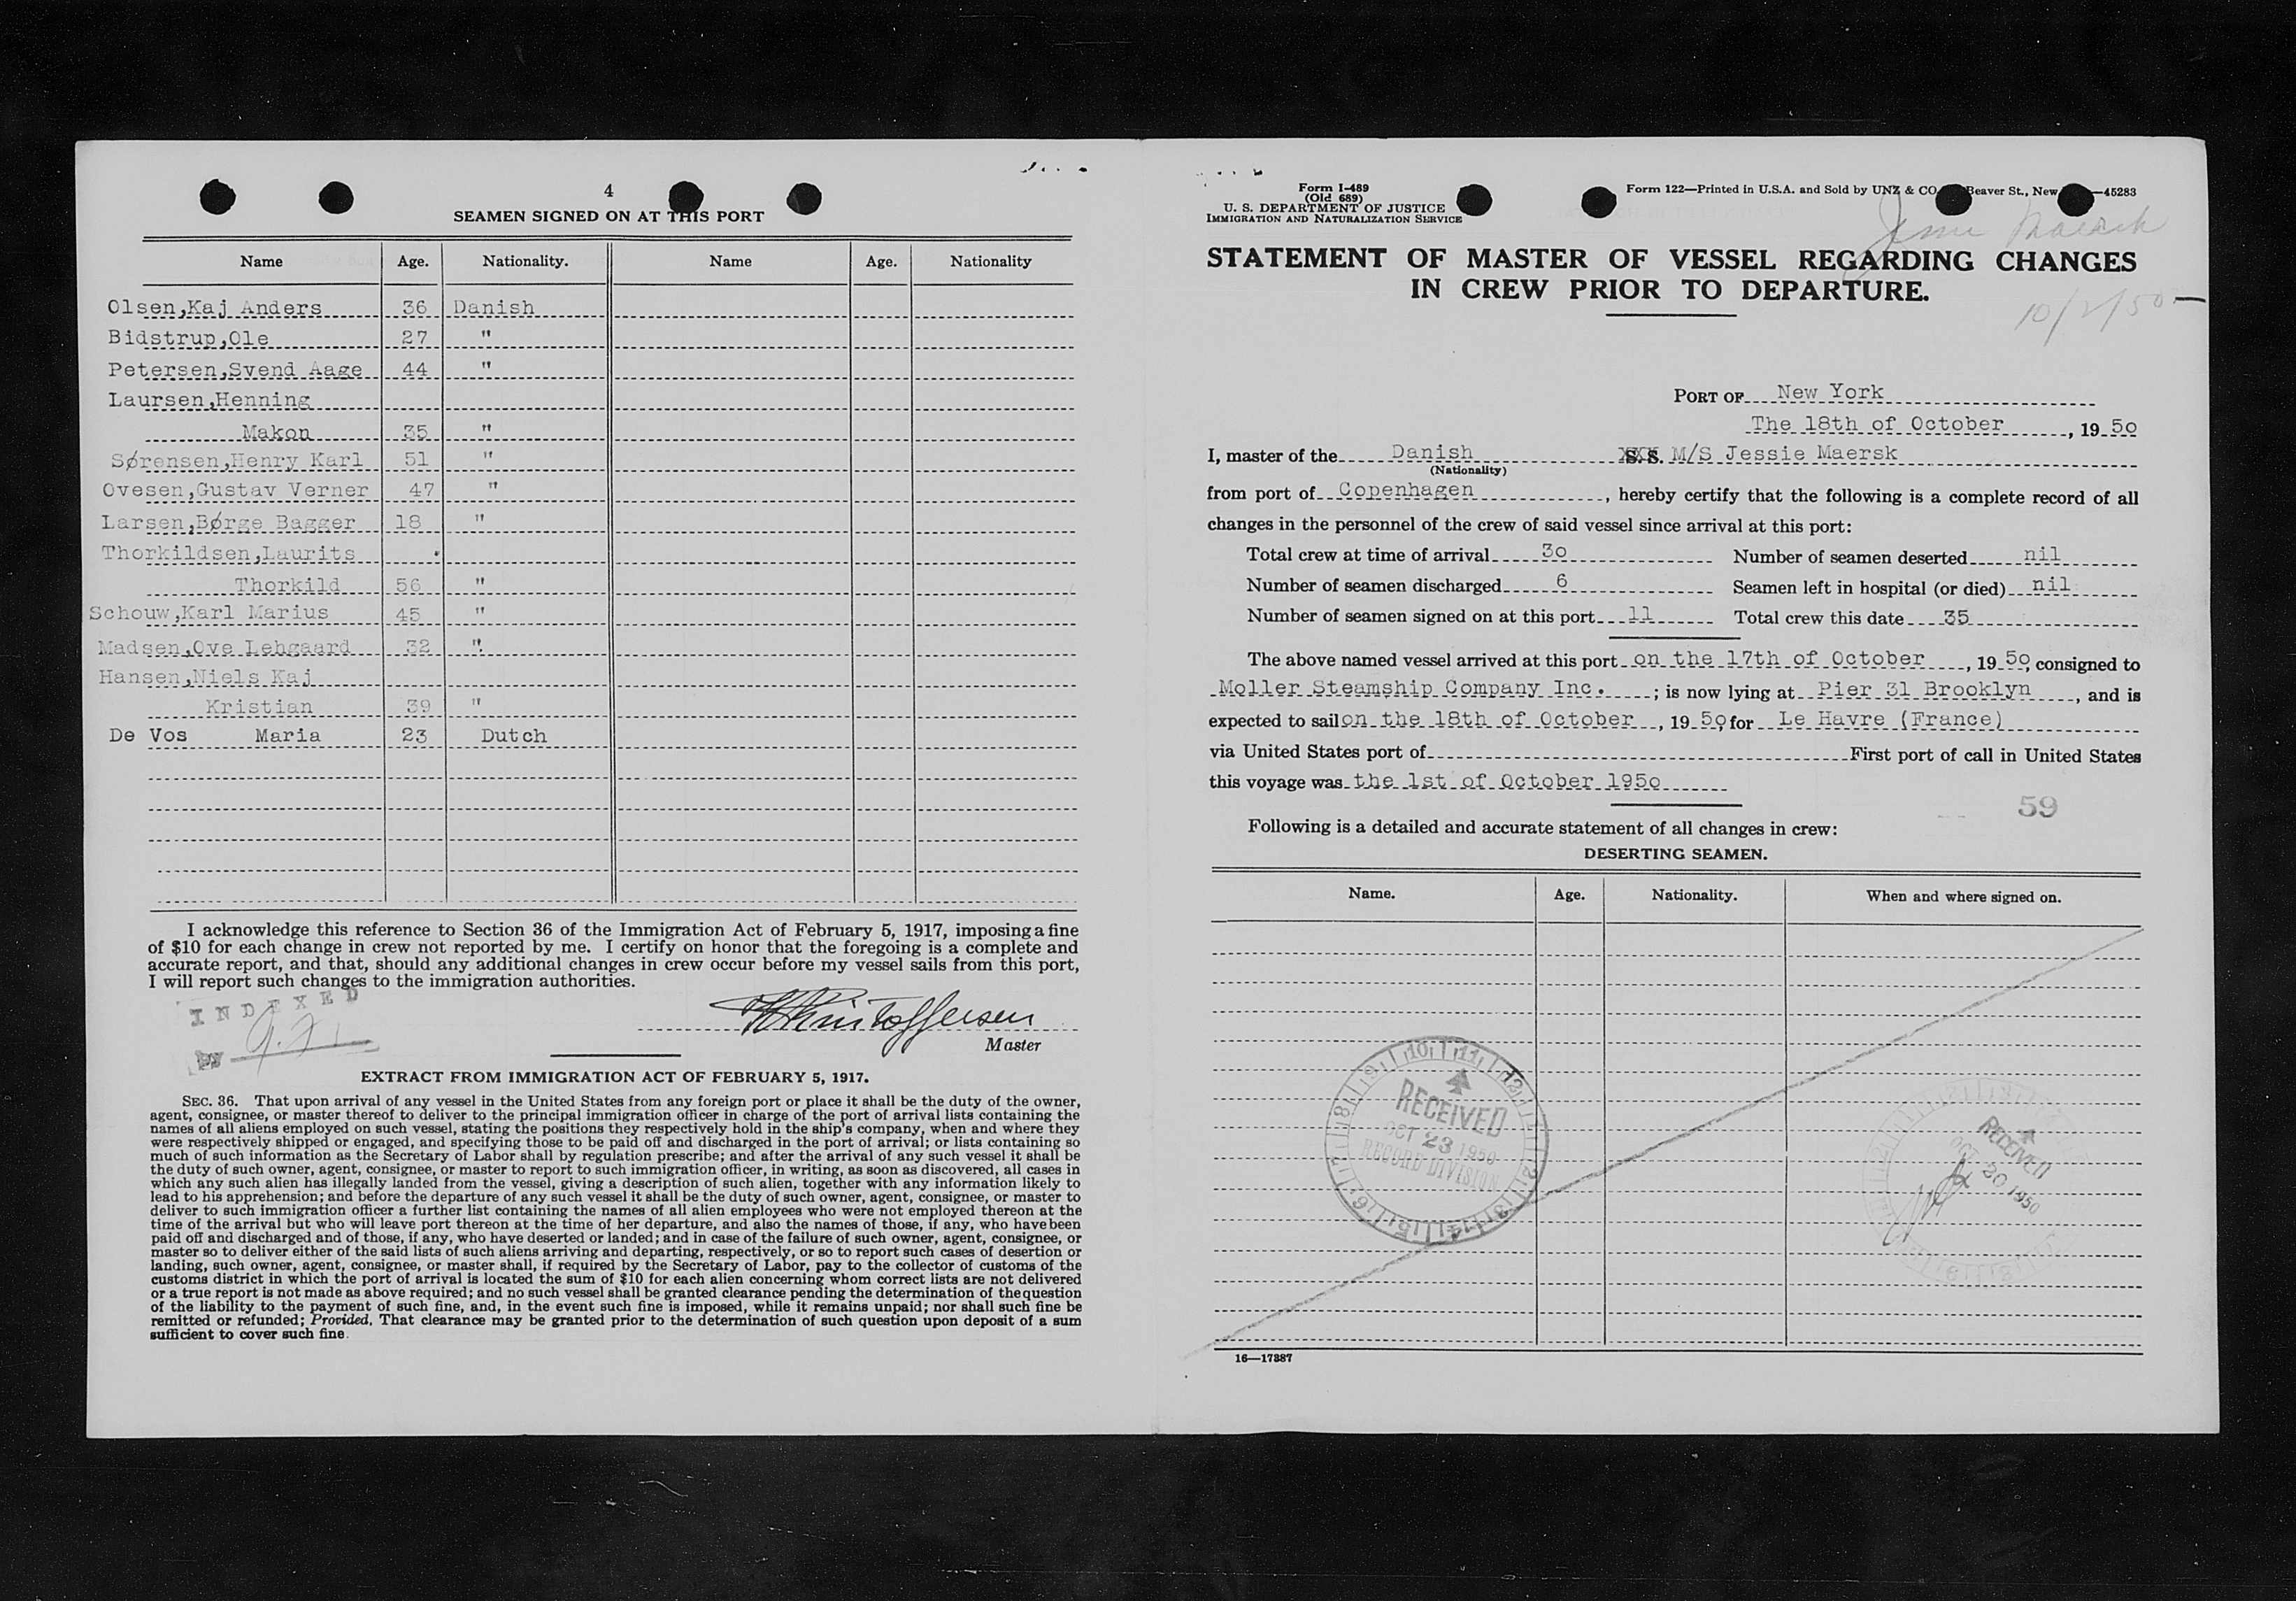 4
SEAMEN SIGNED ON AT THIS PORT
Name Age. Nationality. Name Age. Nationality
Olsen,Kaj Anders 36 Danish
Bidstrup,Ole 27 "
Petersen,Svend Aage 44 "
Laursen,Henning
Makon 35 "
Sørensen,Henry Karl 51 "
Ovesen,Gustav Verner 47 "
Larsen,Børge Bagger 18 "
Thorkildsen,Laurits
Thorkild 56 "
Schouw,Karl Marius 45 "
Madsen,Ove Lehgaard 32 "
Hansen,Niels Kaj
Kristian 39 "
De Vos Maria 23 Dutch
I acknowledge this reference to Section 36 of the Immigration Act of February 5, 1917, imposing a fine
of $10 for each change in crew not reported by me. I certify on honor that the foregoing is a complete and
accurate report, and that, should any additional changes in crew occur before my vessel sails from this port,
I will report such changes to the immigration authorities.
INDEXED
by
Kristoffersen
Master
EXTRACT FROM IMMIGRATION ACT OF FEBRUARY 5, 1917.
SEC. 36. That upon arrival of any vessel in the United States from any foreign port or place it shall be the duty of the owner,
agent, consignee, or master thereof to deliver to the principal immigration officer in charge of the port of arrival lists containing the
names of all aliens employed on such vessel, stating the positions they respectively hold in the ship's company, when and where they
were respectively shipped or engaged, and specifying those to be paid off and discharged in the port of arrival; or lists containing so
much of such information as the Secretary of Labor shall by regulation prescribe; and after the arrival of any such vessel it shall be
the duty of such owner, agent, consignee, or master to report to such immigration officer, in writing, as soon as discovered, all cases in
which any such alien has illegally landed from the vessel, giving a description of such alien, together with any information likely to
lead to his apprehension; and before the departure of any such vessel it shall be the duty of such owner, agent, consignee, or master to
deliver to such immigration officer a further list containing the names of all alien employees who were not employed thereon at the
time of the arrival but who will leave port thereon at the time of her departure, and also the names of those, if any, who have been
paid off and discharged and of those, if any, who have deserted or landed; and in case of the failure of such owner, agent, consignee, or
master so to deliver either of the said lists of such aliens arriving and departing, respectively, or so to report such cases of desertion or
landing, such owner, agent, consignee, or master shall, if required by the Secretary of Labor, pay to the collector of customs of the
customs district in which the port of arrival is located the sum of $10 for each alien concerning whom correct lists are not delivered
or a true report is not made as above required; and no such vessel shall be granted clearance pending the determination of the question
of the liability to the payment of such fine, and, in the event such fine is imposed, while it remains unpaid; nor shall such fine be
remitted or refunded; Provided, That clearance may be granted prior to the determination of such question upon deposit of a sum
sufficient to cover such fine.
Form I-489
(Old 689)
U. S. DEPARTMENT OF JUSTICE
IMMIGRATION AND NATURALIZATION SERVICE
Form 122—Printed in U.S.A. and Sold by UNZ & CO. Beaver St., New —45283
Jessie Maersk
STATEMENT OF MASTER OF VESSEL REGARDING CHANGES
IN CREW PRIOR TO DEPARTURE.
10/2/50
PORT OF New York
The 18th of October, 19 50
I, master of the Danish S.S. M/S Jessie Maersk
(Nationality)
from port of Copenhagen, hereby certify that the following is a complete record of all
changes in the personnel of the crew of said vessel since arrival at this port:
Total crew at time of arrival 30 Number of seamen deserted nil
Number of seamen discharged 6 Seamen left in hospital (or died) nil
Number of seamen signed on at this port 11 Total crew this date 35
The above named vessel arrived at this port on the 17th of October, 19 50, consigned to
Moller Steamship Company Inc.; is now lying at Pier 31 Brooklyn, and is
expected to sail on the 18th of October, 19 50, for Le Havre (France)
via United States port of First port of call in United States
this voyage was the 1st of October 1950
59
Following is a detailed and accurate statement of all changes in crew:
DESERTING SEAMEN.
Name. Age. Nationality. When and where signed on.
RECEIVED
OCT 23 1950
RECORD DIVISION
RECEIVED
OCT 20 1950
16—17387